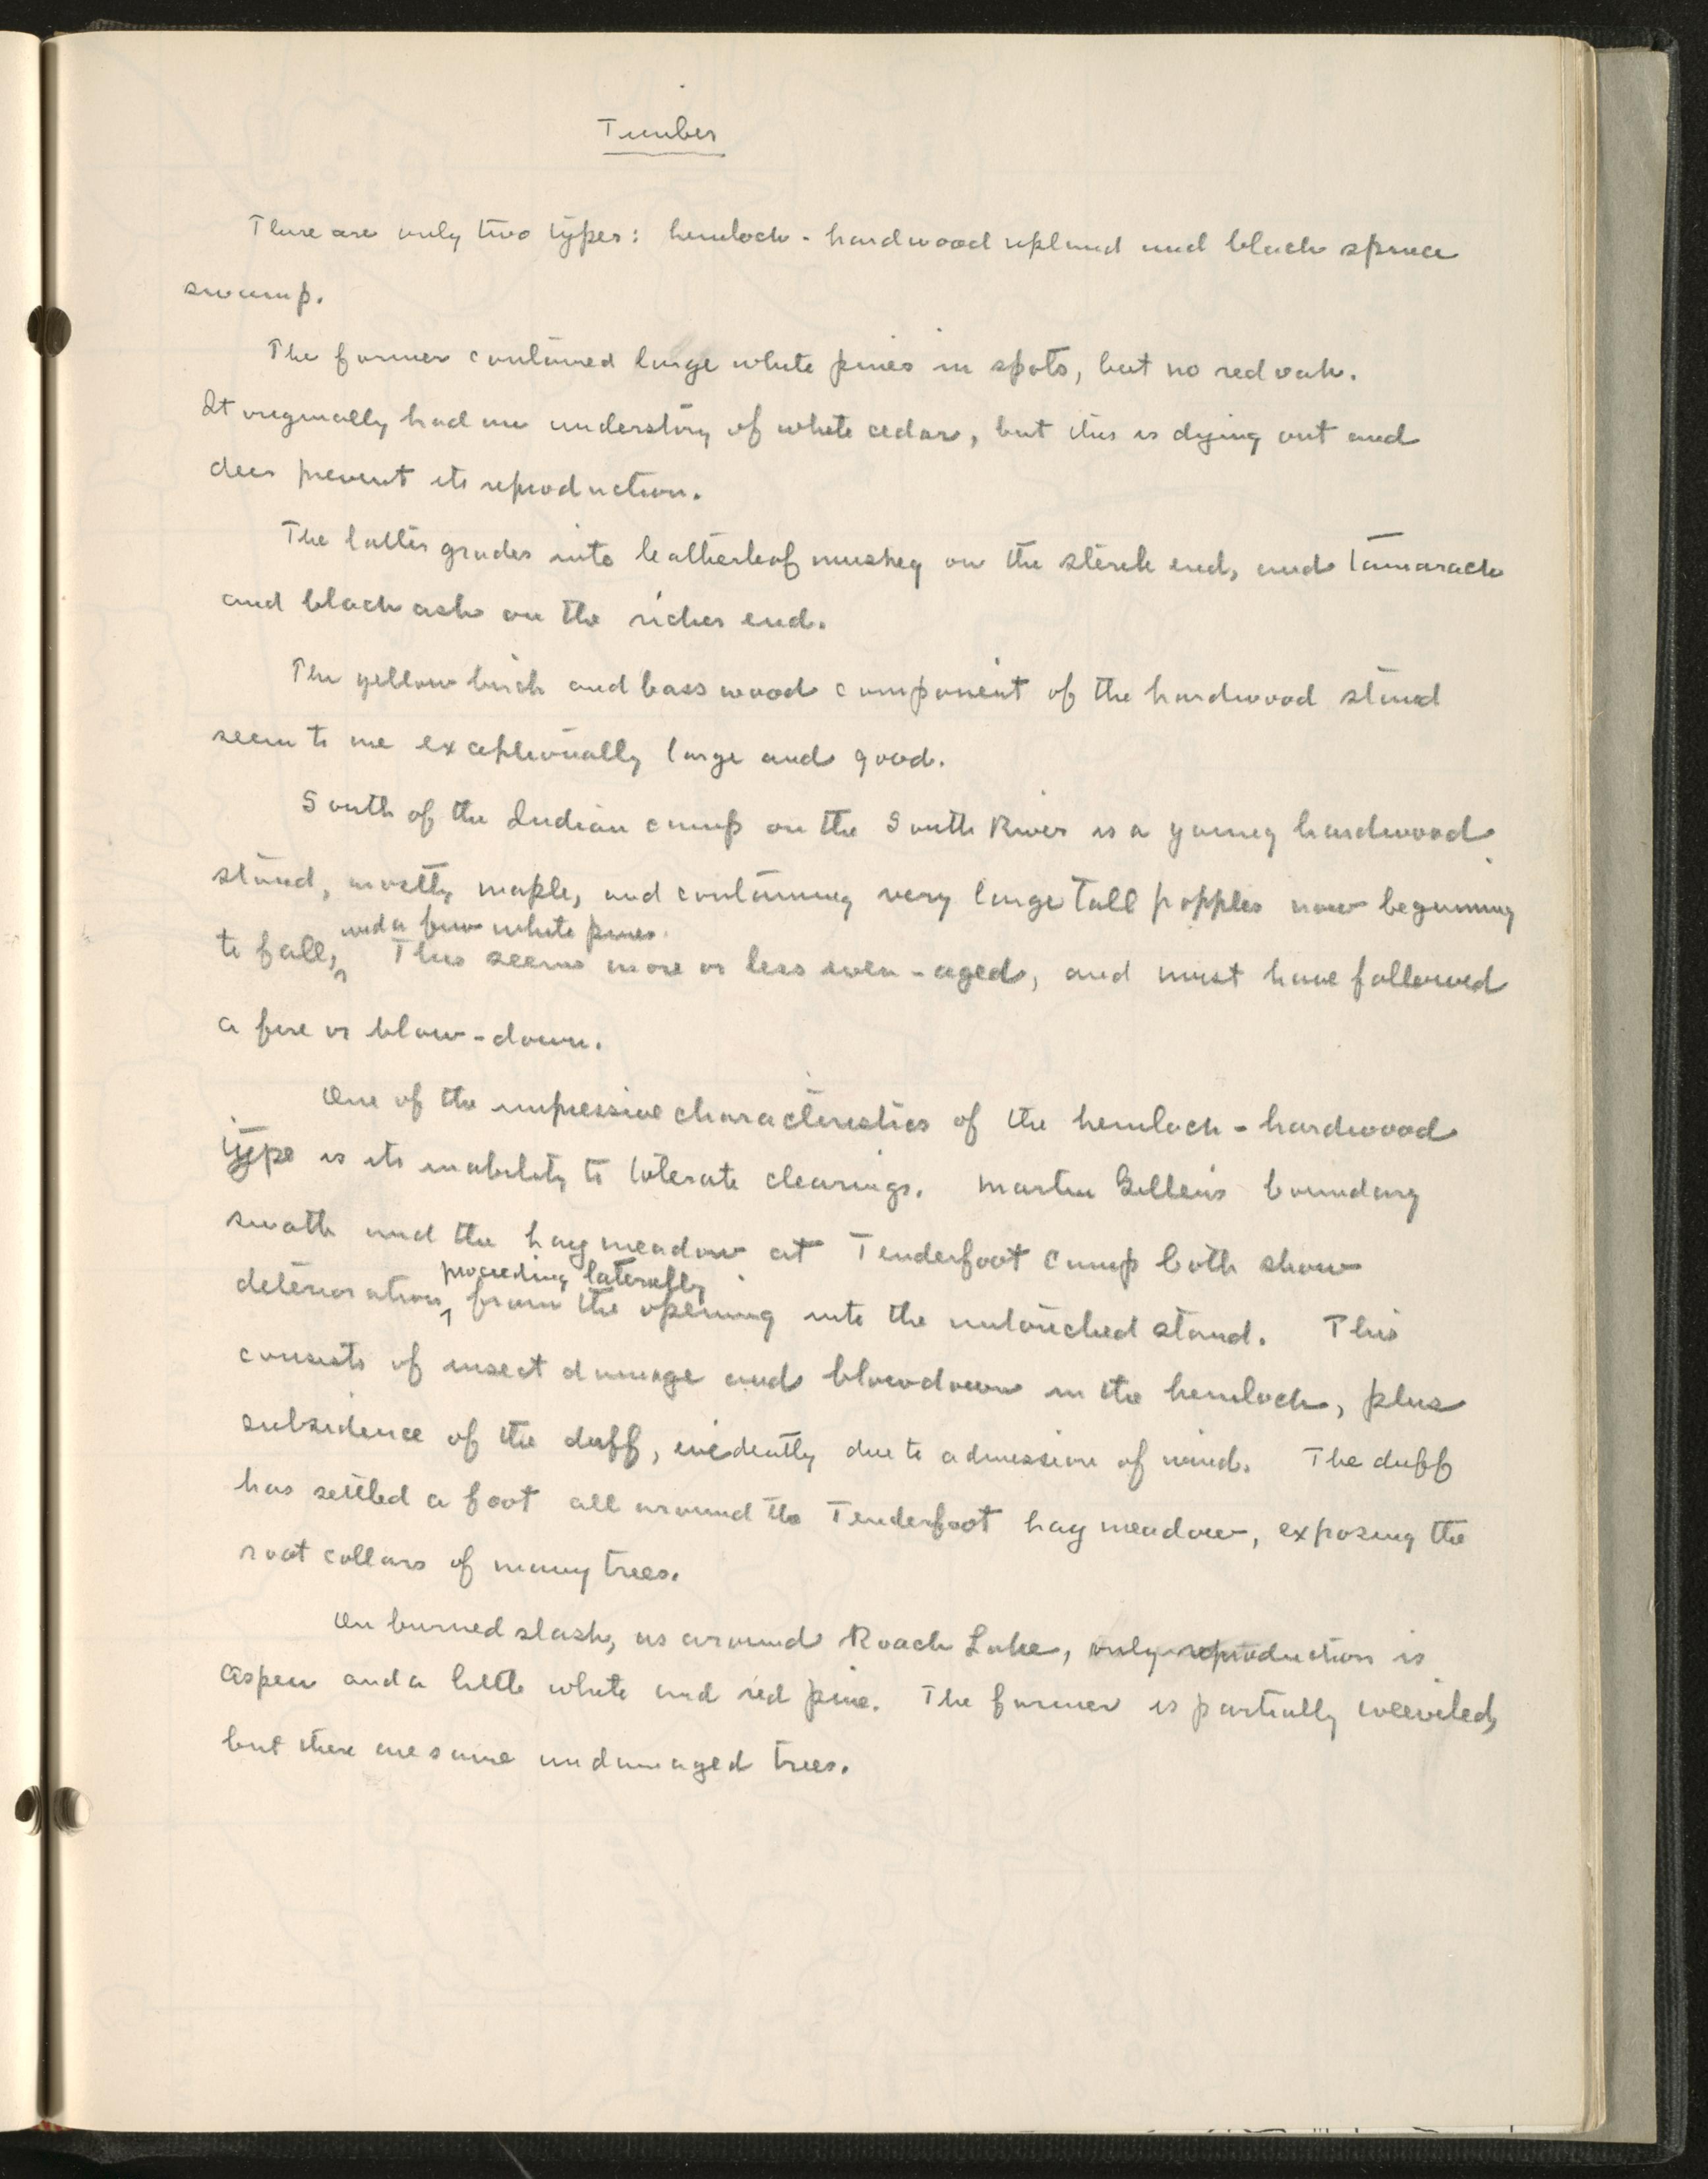 Timber
There are only two types: hemlock-hardwood upland and black spruce
swamp.
The former contained large white pines in spots, but no red oak.
It originally had an understory of white cedar, but this is dying out and
deer prevent its reproduction.
The latter grades into leatherleaf muskeg on the sterile end, and tamarack
and black ash on the richer end.
The yellow birch and basswood component of the hardwood stand
seem to me exceptionally large and good.
South of the Indian camp on the South River is a young hardwood
stand, mostly maple, and containing very large tall popples now beginning
and a few white pines.
to fall, This seems more or less even-aged, and must have followed
a fire or blow-down.
One of the impressive characteristics of the hemlock-hardwood
type is its inability to tolerate clearings. Martin Gillen's boundary
swath and the hay meadow at Tenderfoot Camp both show
proceeding laterally
deterioration from the opening into the untouched stand. This
consists of insect damage and blowdown in the hemlock, plus
subsidence of the duff, evidently due to admission of wind. The duff
has settled a foot all around the Tenderfoot hay meadow, exposing the
root collars of many trees.
On burned slash, as around Roach Lake, only reproduction is
aspen and a little white and red pine. The former is partially weeviled,
but there are some undamaged trees.